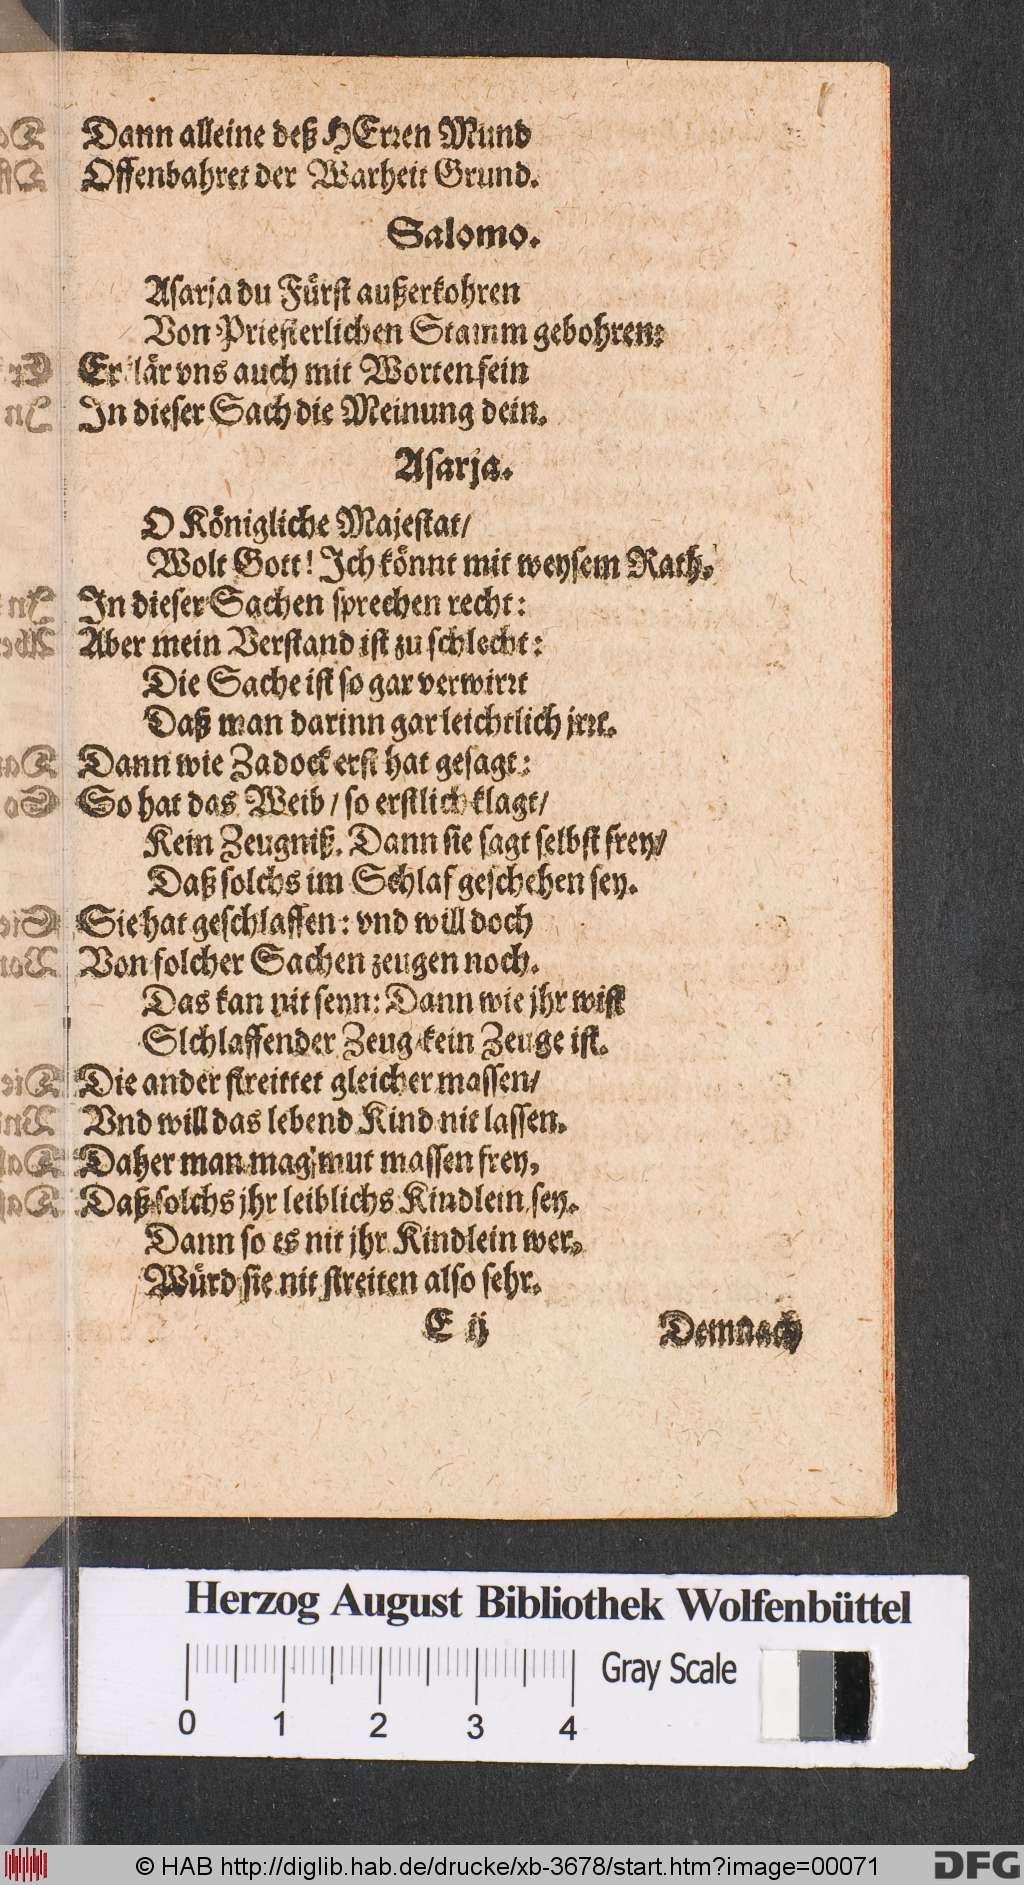 Dann alleine deß HErren Mund
Offenbahret der Warheit Grund.
Salomo.
Asarja du Fürst außerkohren
Von Priesterlichen Stamm gebohren:
Erklär vns auch mit Worten fein
In dieser Sach die Meinung dein.
Asarja.
O Königliche Majestat/
Wolt Gott! Ich könnt mit weysem Rath,
In dieser Sachen sprechen recht:
Aber mein Verstand ist zu schlecht:
Die Sache ist so gar verwirrt
Daß man darinn gar leichtlich jrrt.
Dann wie Zadock erst hat gesagt:
So hat das Weib / so erstlich klagt/
Kein Zeugniß. Dann sie sagt selbst frey/
Daß solchs im Schlaf geschehen sey.
Sie hat geschlaffen: vnd will doch
Von solcher Sachen zeugen noch.
Das kan nit seyn: Dann wie jhr wist
Slchlaffender Zeug kein Zeuge ist.
Die ander streittet gleicher massen/
Vnd will das lebend Kind nit lassen.
Daher man mag mut massen frey,
Daß solchs jhr leiblichs Kindlein sey.
Dann so es nit jhr Kindlein wer,
Würd sie nit streiten also sehr.
E ij Demnach
Herzog August Bibliothek Wolfenbüttel
Gray Scale
0 1 2 3 4
© HAB http://diglib.hab.de/drucke/xb-3678/start.htm?image=00071
DFG